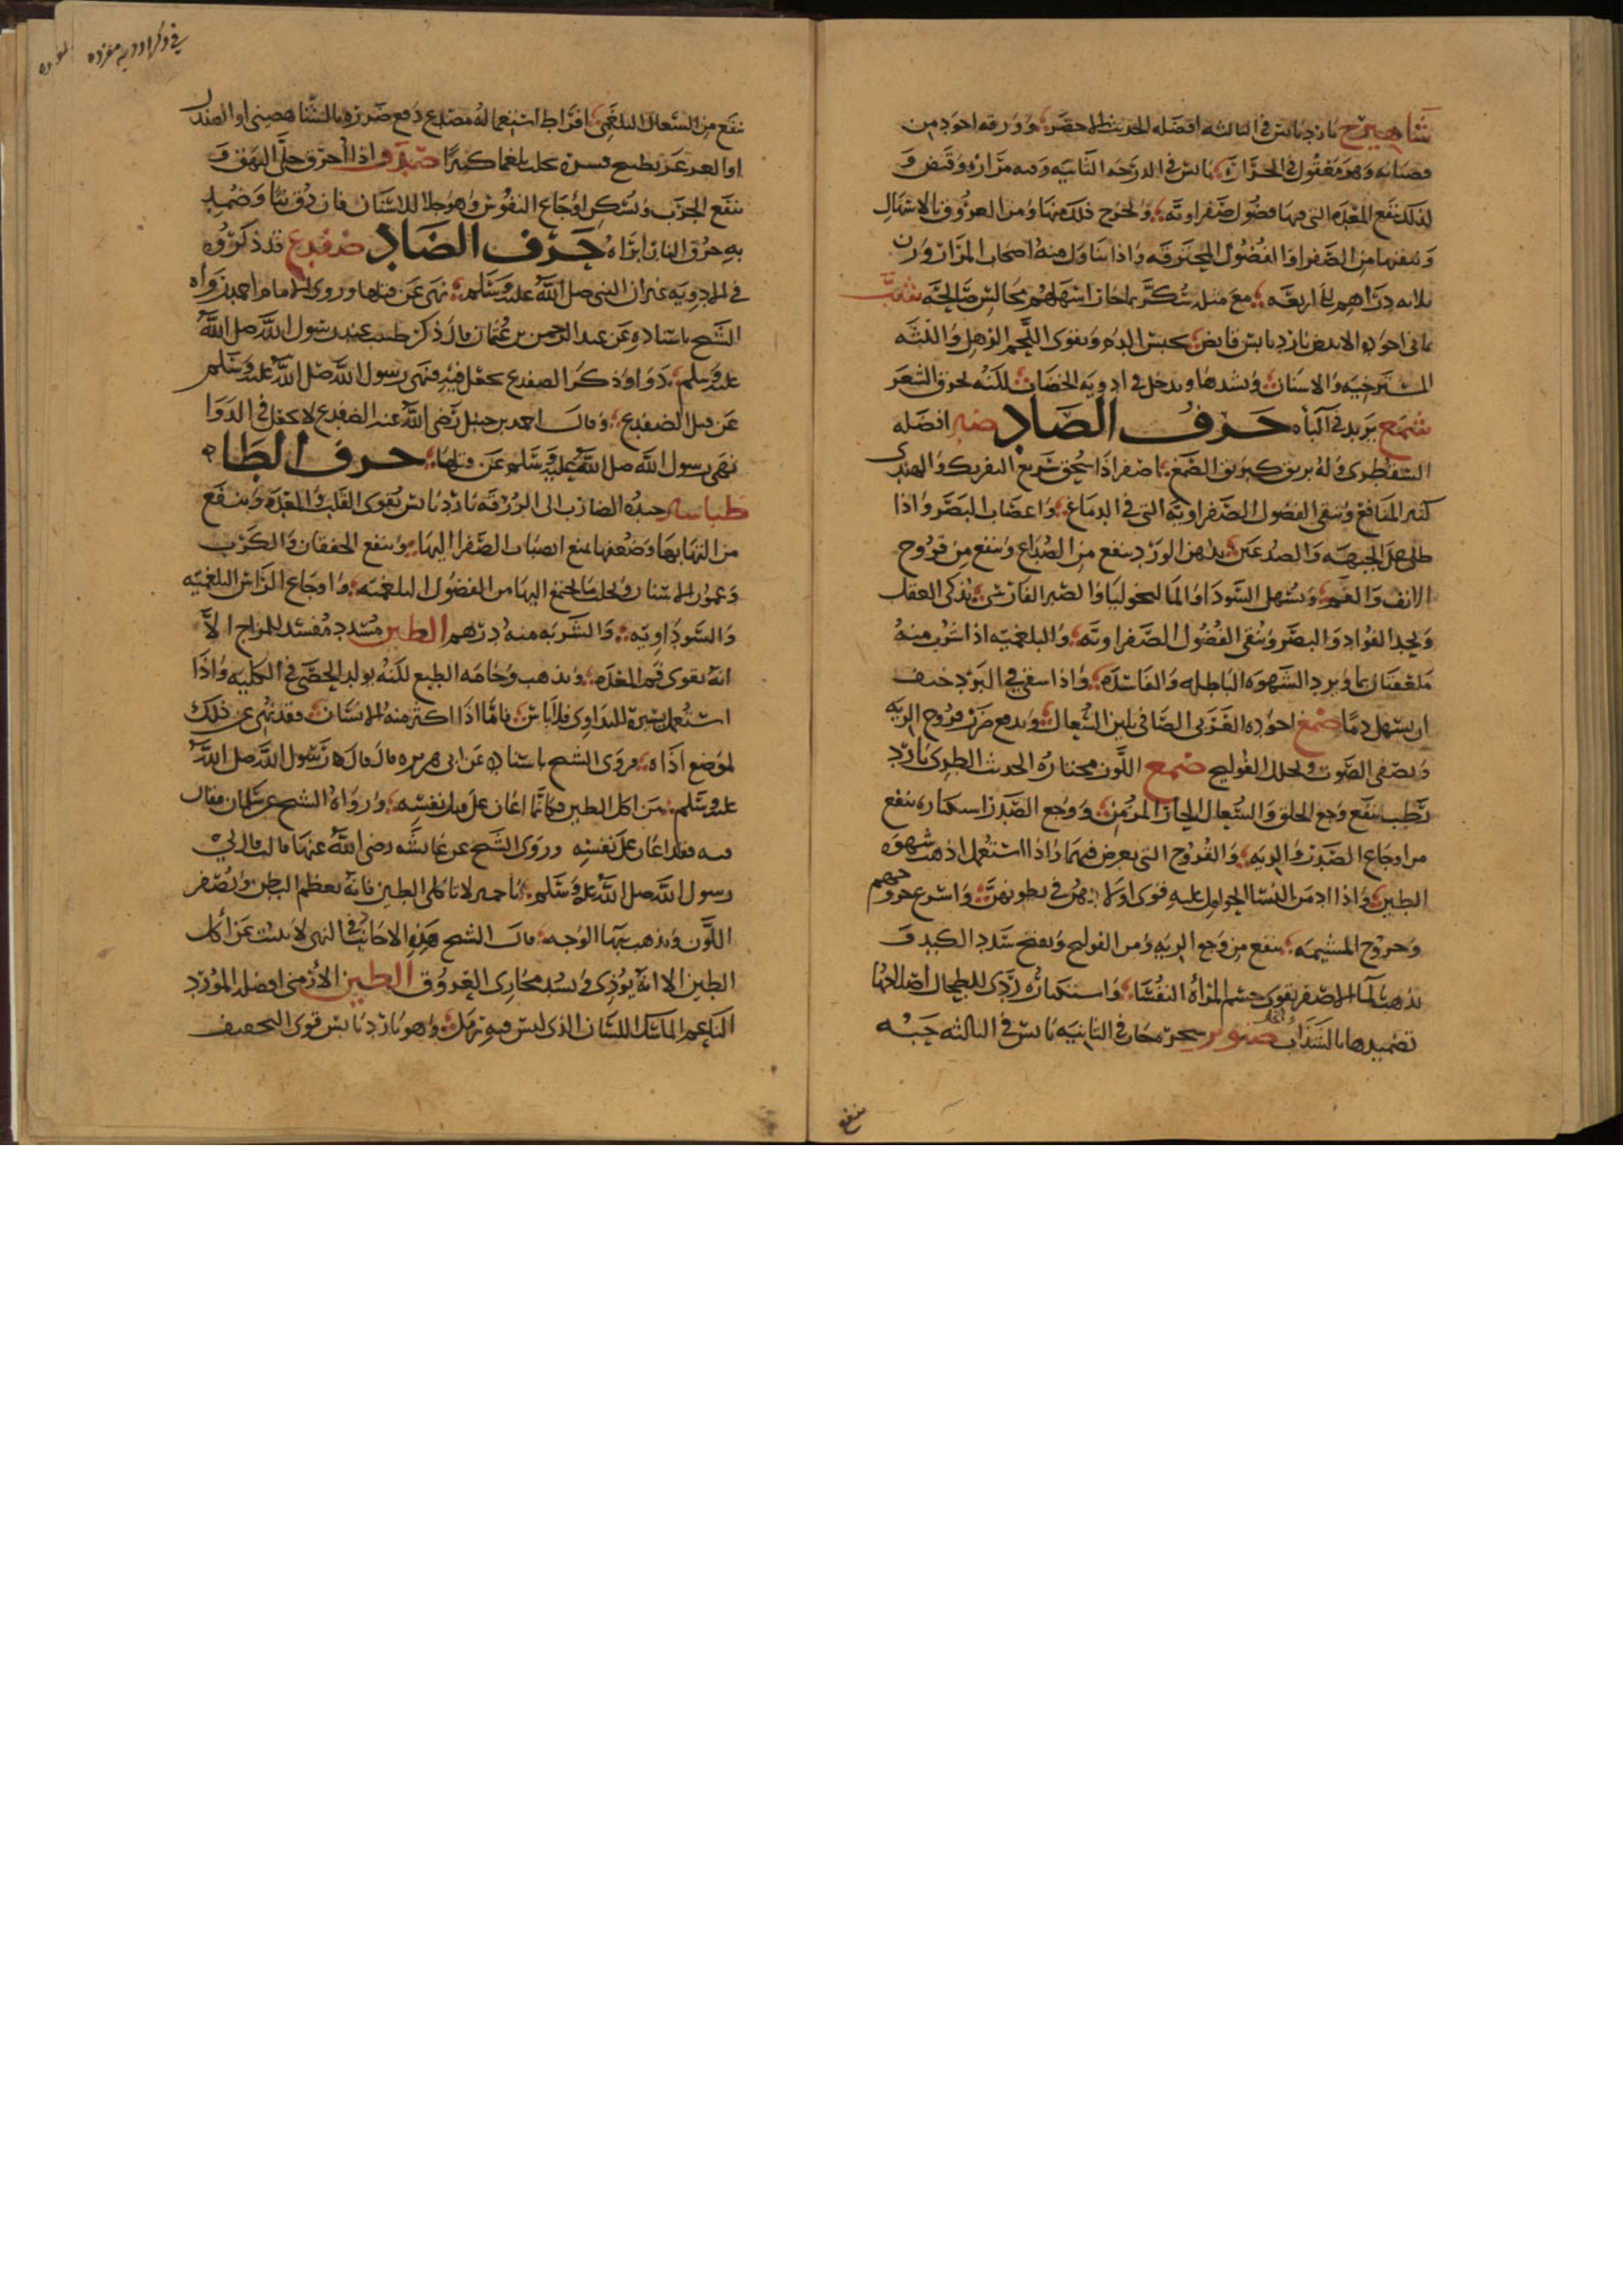 شاهترج بارد يابس في الثالثة افضله الحديث الاخضر وورقه اجود من
قضبانه وهو معقول في الحرارة يابس في الدرجة الثانية وفيه مرارة وقبض و
لذلك ينفع المعدة التي فيها فضول صفراوية ويخرج ذلك منها ومن العروق بالاسهال
وينقيها من الصفرا والفضول المحترقة واذا تناول منه اصحاب المرار وزن
ثلاثة دراهم الى اربعة مع مثله سكر بماء حار اسهلهم مجالس صالحة شب
يماني اجوده الابيض بارد يابس قابض يحبس الدم ويقوي اللحم الرهل واللثة
المسترخية والاسنان ويشدها ويدخل في ادوية الخضاب لكنه يحرق الشعر
شمع يزيد في الباه حرف الصاد صبر افضله
السقطري وله بريق كبريق الصمغ اصفر اذا سحق سريع التفريك والهندي
كثير المنافع وينقي الفضول الصفراوية التي في الدماغ واعصاب البصر واذا
طلي على الجبهة والصدغين بدهن الورد ينفع من الصداع وينفع من قروح
الانف والفم ويسهل السودا والمالنخوليا والصبر الفارسي يذكي العقل
ويحد الفواد والبصر وينقي الفضول الصفراوية والبلغمية اذا شرب منه
ملعقتان بماء ويرد الشهوة الباطلة والفاسدة واذا سقي في البرد خيف
ان يسهل دما صمغ اجوده العربي الصافي يلين السعال ويدفع ضرر قروح الرية
ويصفي الصوت ويحلل القولنج صمغ اللون مختاره الحديث الطري بارد
رطب ينفع وجع الحلق والسعال الحار المزمن ووجع الصدر استكثاره ينفع
من اوجاع الصدر والرية والقروح التي يعرض فيهما واذا استعمل اذهب شهوة
الطين واذا ادمن النسا الحوامل عليه قوى اولادهن في بطونهن واسرع خروجهم
وخروج المشيمة ينفع من وجع الرية ومن القولنج ويفتح سدد الكبد و
يذهب الماء الاصفر يقوي جسم المرأة النفساء واستكثاره ردي للطحال اصلاحها
تضميدها بالسذاب والخل صنوبر شجر حار في الثانية يابس في الثالثة حبه
ينفع
في ذكر ادوية مفرده
ينفع من السعال البلغمي افراط استعماله مصدع دفع ضرره بالشاهصيني او الصندل
او العدس بطبيخ قشره يحلب بلغما كثيرا صدف اذا احرق جلى البهق و
ينفع الجرب ويسكن اوجاع النقرس وهو جلا للاسنان فان دق نيا وضمد
به حرق النار ابراه حرف الضاد ضفدع قد ذكروه
في الادوية غير ان النبي صلى الله عليه وسلم نهى عن قتلها وروى الامام احمد ورواه
الشيخ باسناده عن عبد الرحمن بن عثمان قال ذكر طبيب عند رسول الله صلى الله
عليه وسلم دوا وذكر الضفدع يجعل فيه فنهى رسول الله صلى الله عليه وسلم
عن قتل الضفدع وقال احمد بن حنبل رضي الله عنه الضفدع لا يجعل في الدوا
نهى رسول الله صلى الله عليه وسلم عن قتلها حرف الطاء
طباشير جيده الضارب الى الزرقة بارد يابس يقوي القلب والمعدة وينفع
من التهابها وضعفها يمنع انصباب الصفرا اليها وينفع الخفقان والكرب
وعمور الاسنان ويحلب ما يجتمع اليها من الفضول البلغمية واوجاع الراس البلغمية
والسوداوية والشربة منه درهم الطين مسدد مفسد للمزاج الا
انه يقوي فم المعدة ويذهب وخامة الطبع لكنه يولد الحصى في الكلية واذا
استعمل يسيره للتداوي فلا باس فاما اذا اكثر منه الانسان فقد نهي عن ذلك
لموضع اذاه وروى الشيخ باسناده عن ابي هريرة قال قال رسول الله صلى الله
عليه وسلم من اكل الطين فكانما اعان على قتل نفسه ورواه الشيخ عن سلمان فقال
فيه فقد اعان على نفسه وروى الشيخ عن عائشة رضي الله عنها قالت قال لي
رسول الله صلى الله عليه وسلم يا حميرا لا تاكلي الطين فانه يعظم البطن ويصفر
اللون ويذهب بهاء الوجه قال الشيخ هذه الاحاديث في النهي لا تثبت عن اكل
الطين الا انه يوذي ويسد مجاري العروق الطين الارمني افضله المورد
الناعم الماسك اللسان الذي ليس فيه رمل وهو بارد يابس قوي التجفيف